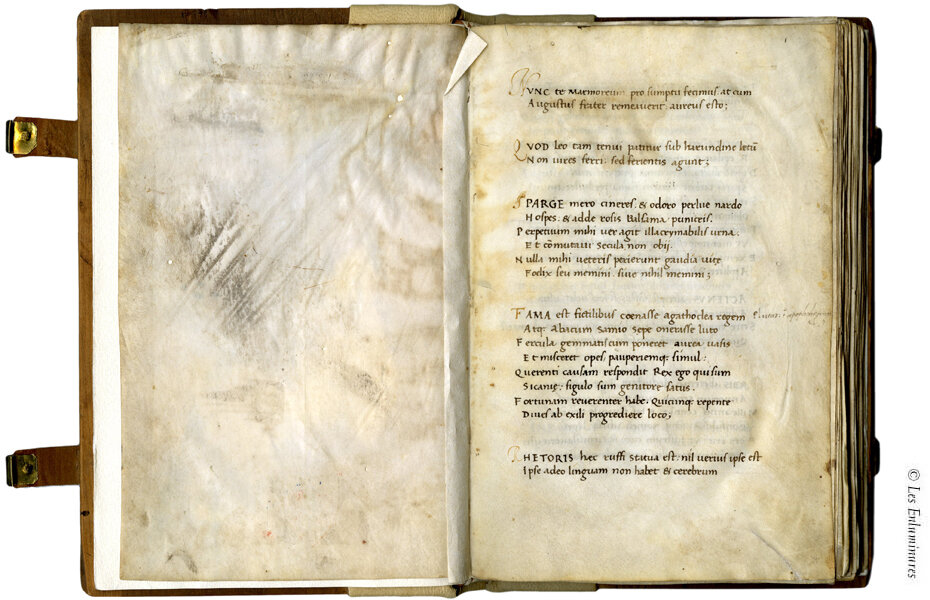 NVNC te Marmoreum pro sumptu fecimus at cum
Augustus frater remeaverit: aureus esto;
QVOD leo tam tenui patitur sub harundine letū
Non uires ferri: sed ferientis agunt;
SPARGE mero cineres: & odoro perlue nardo
Hospes: & adde rosis balsama puniceis.
Perpetuum mihi uer agit illacrymabilis urna:
Et cōmutaui secula, non obij.
Nulla mihi ueteris perierunt gaudia uitę
Seu memini: siue nihil memini;
FAMA est fictilibus coenasse agathoclea regem
Atq; Abacum Samio sepe onerasse luto
Fercula gemmatis cum poneret aurea uasis
Et misceret opes, pauperiemq; simul:
Querenti causam respondit Rex ego qui sum
Sicanię: figulo sum genitore satus.
Fortunam reuerenter habe, Quicunq; repente
Diues ab exili progrediere loco;
RHETORIS hec ruffi statua est: nil uerius ipse est
Ipse adeo linguam non habet & cerebrum
© Les Enluminures